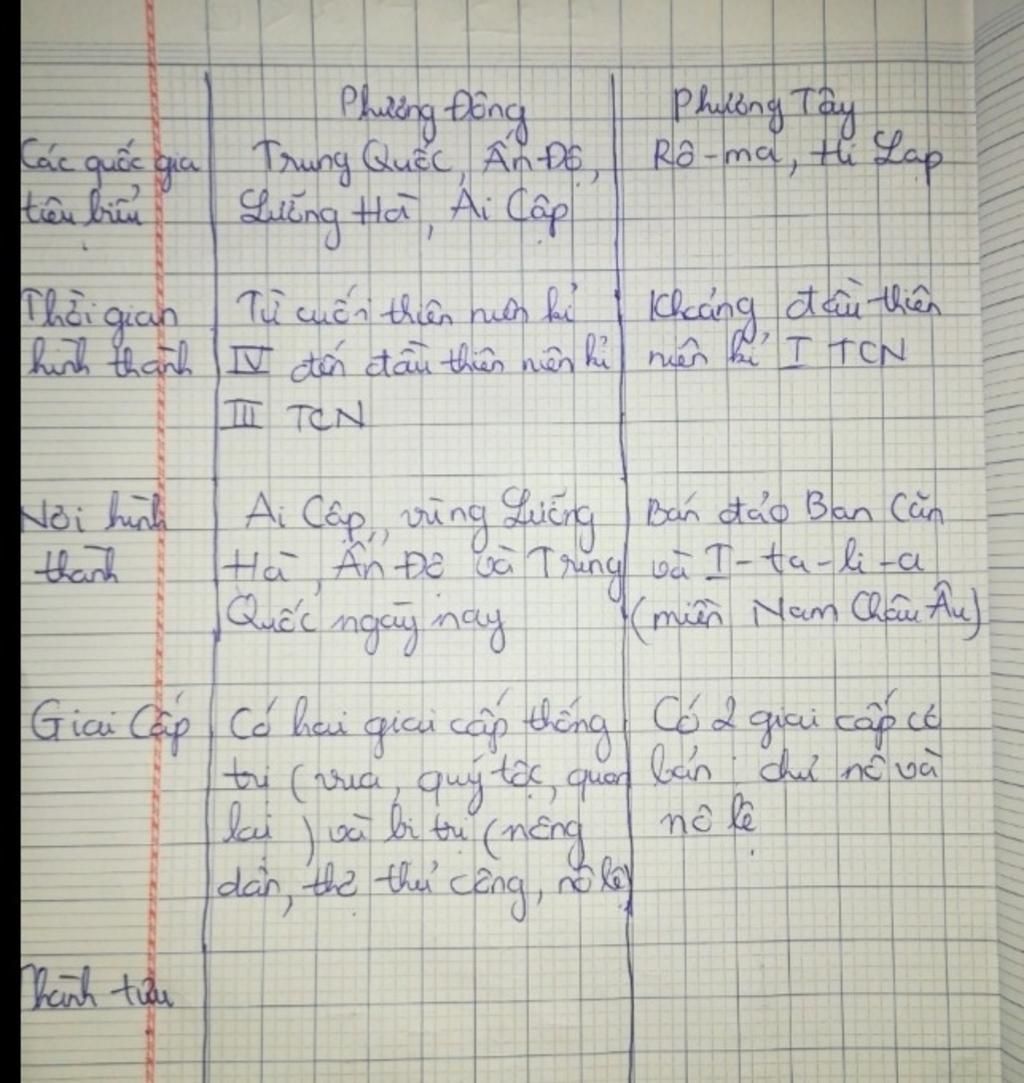 Phương Đông
Phương Tây
Các quốc gia
tiêu biểu
Trung Quốc, Ấn Độ,
Lưỡng Hà, Ai Cập
Rô-ma, Hi Lạp
Thời gian
hình thành
Từ cuối thiên niên kỉ
IV đến đầu thiên niên kỉ
III TCN
Khoảng đầu thiên
niên kỉ I TCN
Nơi hình
thành
Ai Cập, vùng Lưỡng
Hà, Ấn Độ và Trung
Quốc ngày nay
Bán đảo Ban Căn
và I-ta-li-a
(miền Nam Châu Âu)
Giai Cấp
Có hai giai cấp thống
trị (vua, quý tộc, quan
lại) và bị trị (nông
dân, thợ thủ công, nô lệ)
Có 2 giai cấp cơ
bản: chủ nô và
nô lệ
Thành tựu